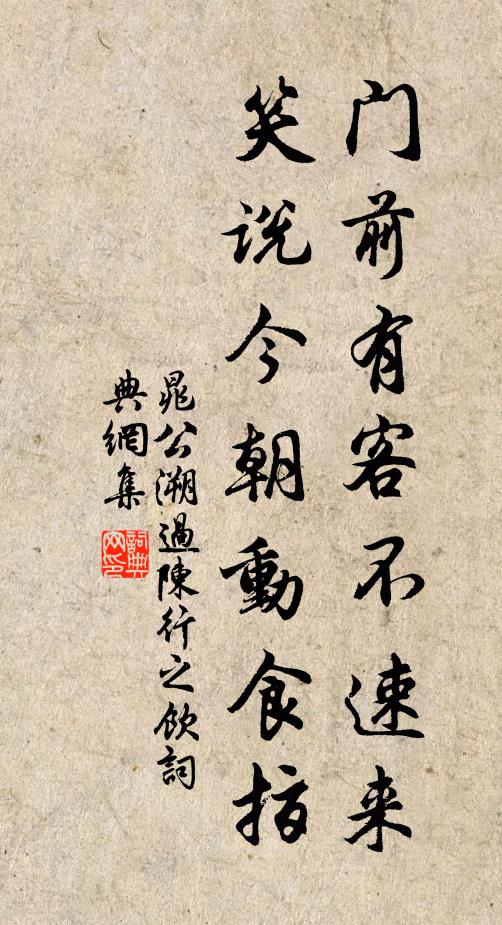 门前有客不速来
笑说今朝動食指
晁公溯過陳行之飲詞
典網集
詞典網印